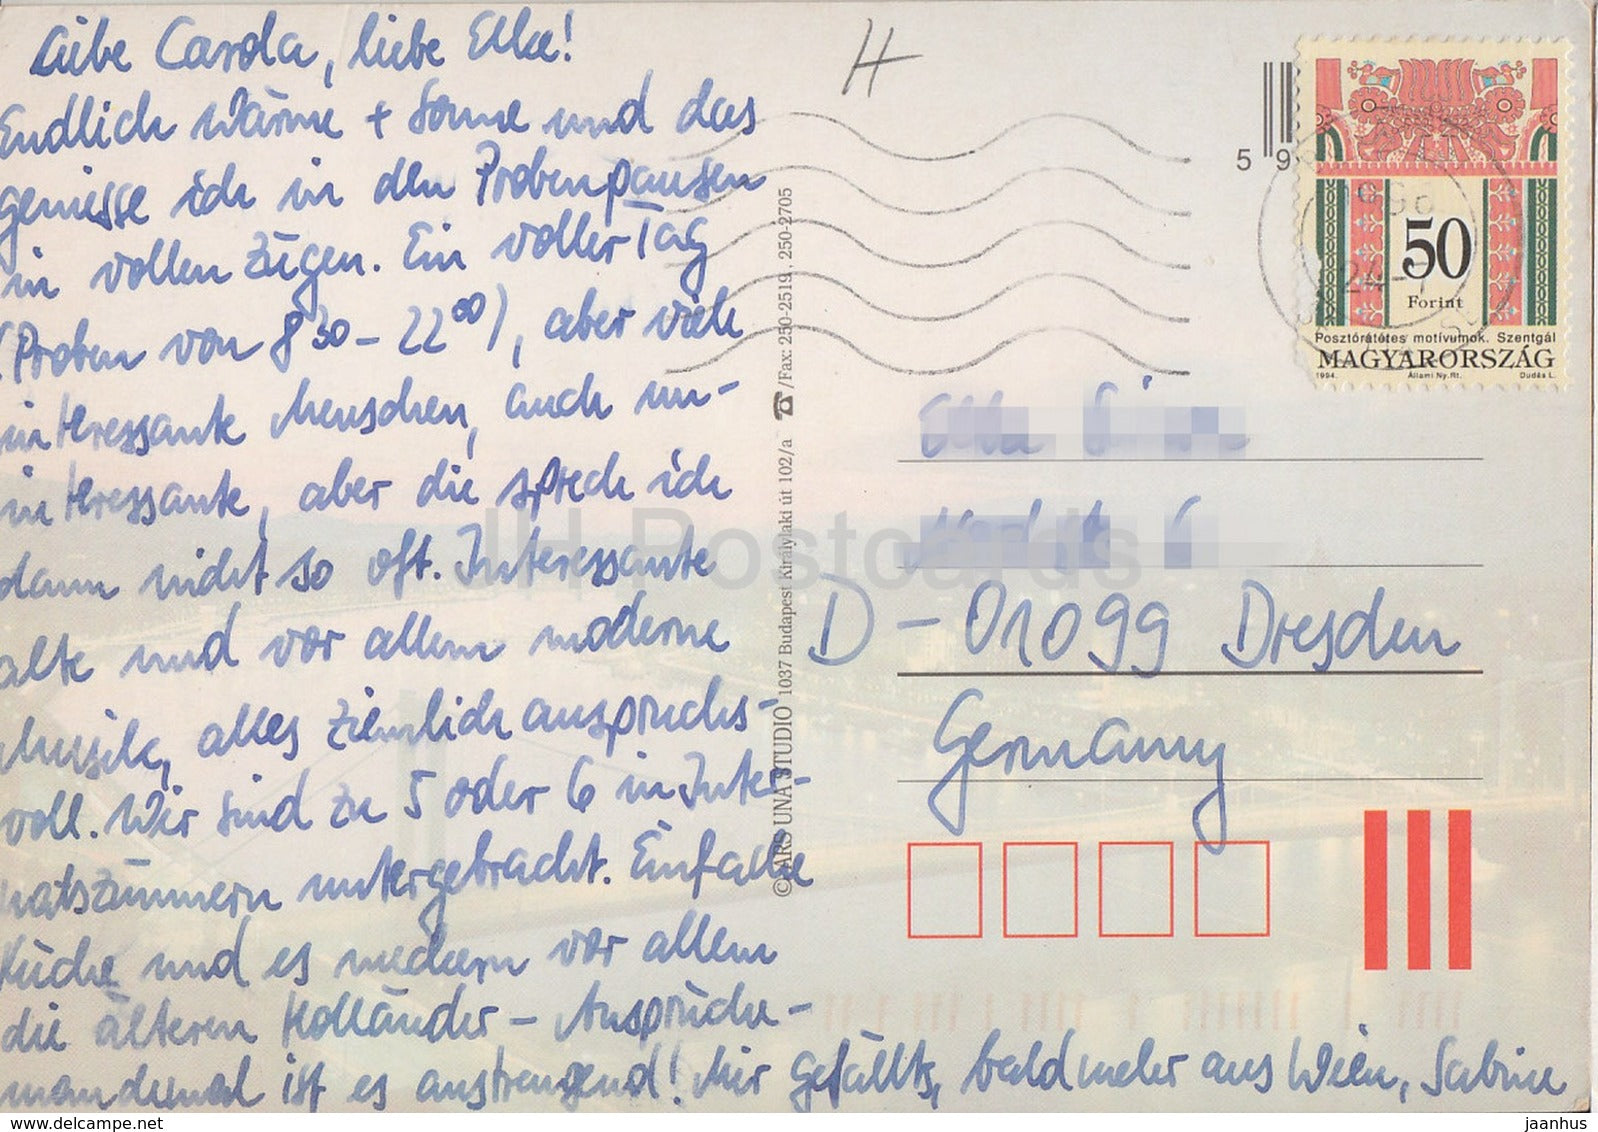 Liebe Carola, liebe Elke!
Endlich Wärme + Sonne und das
geniesse ich in den Probenpausen
in vollen Zügen. Ein voller Tag
(Proben von 8 30 – 22 00), aber viele
interessante Menschen, auch un-
interessante, aber die sprech ich
dann nicht so oft. Interessante
alte und vor allem moderne
Musik, alles ziemlich anspruchs-
voll. Wir sind zu 5 oder 6 in Inter-
natszimmern untergebracht. Einfache
Küche und es meckern vor allem
die älteren Holländer – Ansprüche –
manchmal ist es anstrengend! Mir gefällts, bald mehr aus Wien, Sabine
H
© ARS UNA STUDIO 1037 Budapest Királylaki út 102/a ☎/Fax: 250-2519, 250-2705
5 9
1996
24
50
Forint
Posztórátétes motívumok. Szentgál
MAGYARORSZÁG
1994. Állami Ny. Rt. Dudás L.
D – 01099 Dresden
Germany
JH Postcards
www.delcampe.net
jaanhus